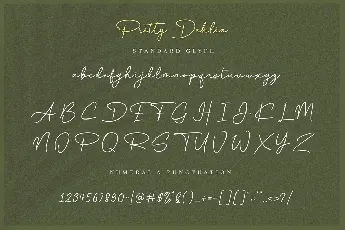 Pretty Dahlia
STANDARD GLYPH
abcdefghijklmnopqrstuvwxyz
ABCDEFGHIJKLM
NOPQRSTUVWXYZ
NUMERAL & PUNCTUATION
1234567890